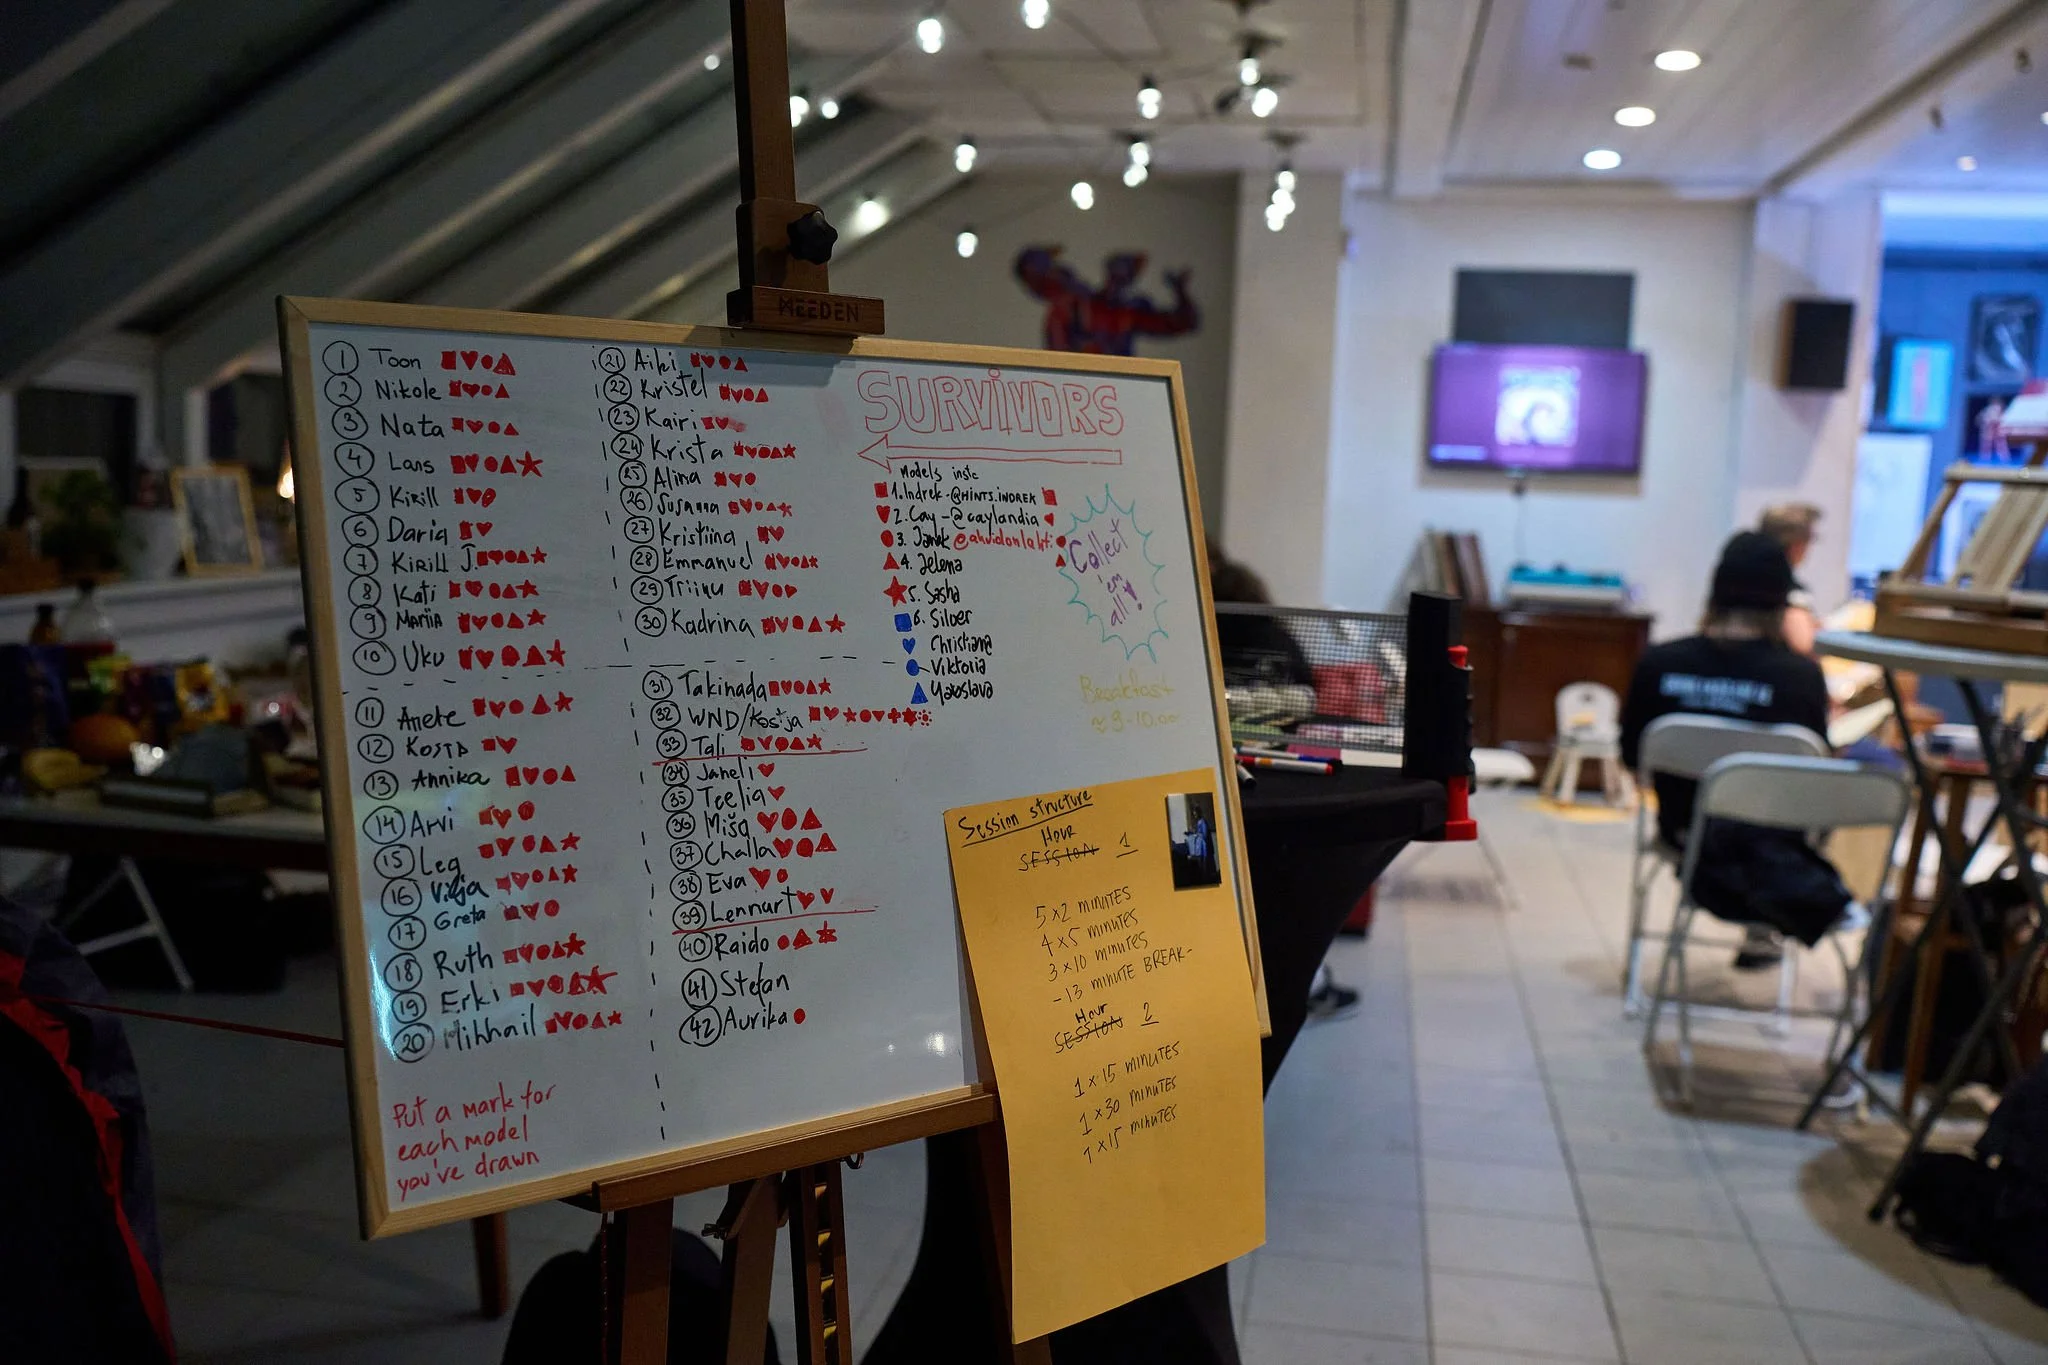 MEEDEN
1 Toon
2 Nikole
3 Nata
4 Lars
5 Kirill
6 Daria
7 Kirill J.
8 Kati
9 Mariia
10 Uku
11 Anete
12 Kosta
13 Annika
14 Arvi
15 Leg
16 Virja
17 Greta
18 Ruth
19 Erki
20 Mihhail
Put a mark for
each model
you've drawn
21 Aiki
22 Kristel
23 Kairi
24 Krista
25 Alina
26 Susanna
27 Kristiina
28 Emmanuel
29 Triinu
30 Kadrina
31 Takinada
32 WND/Kostja
33 Tali
34 Janeli
35 Teelia
36 Miša
37 Challa
38 Eva
39 Lennart
40 Raido
41 Stefan
42 Aurika
SURVIVORS
Models insta
1. Indrek - @HINTS.INDREK
2. Cay - @caylandia
3. Janek
4. Jelena
5. Sasha
6. Silver
Christiana
Viktoria
Yaroslava
Collect
'em
all!
Breakfast
~ 9-10.00
Session structure
Hour
SESSION 1
5 x 2 MINUTES
4 x 5 MINUTES
3 x 10 MINUTES
- 13 MINUTE BREAK -
Hour
SESSION 2
1 x 15 MINUTES
1 x 30 MINUTES
1 x 15 MINUTES